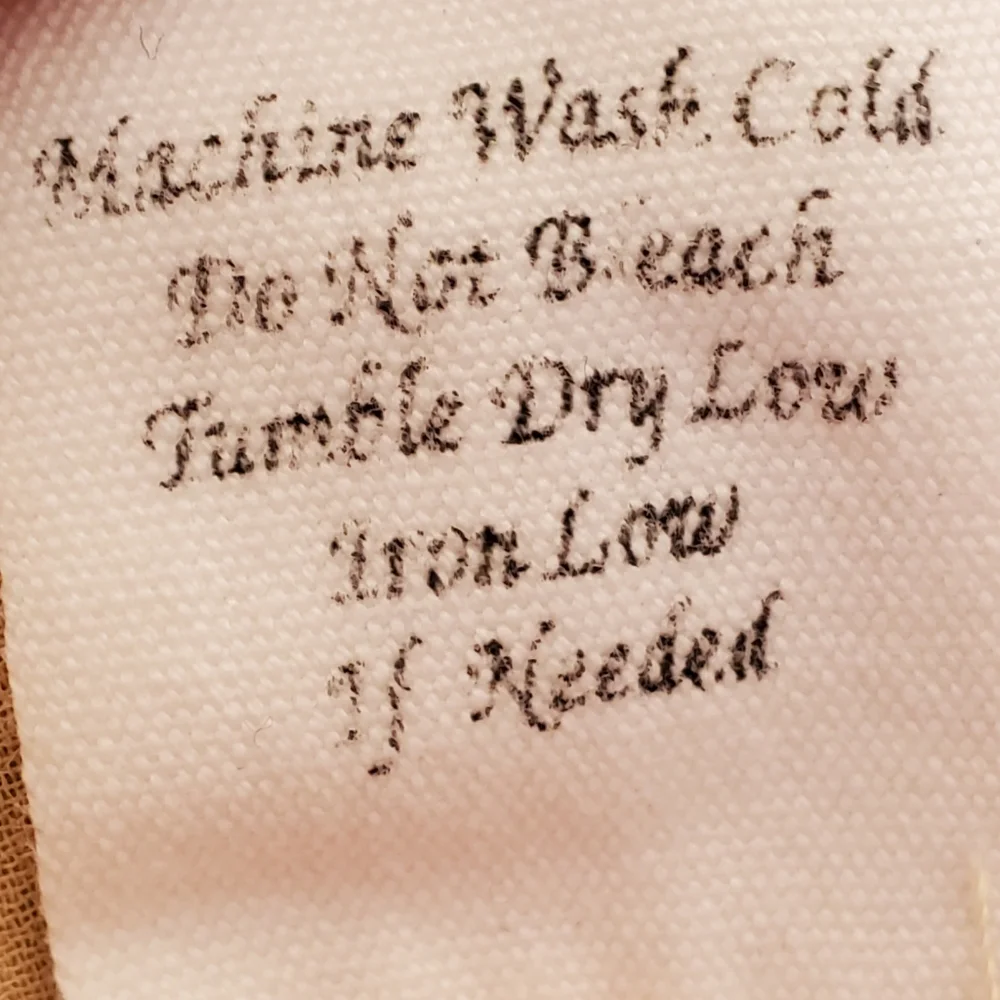 Machine Wash Cold
Do Not Bleach
Tumble Dry Low
Iron Low
If Needed